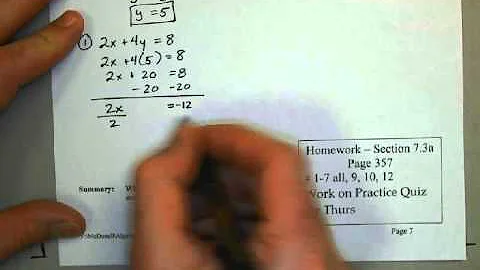 y = 5
① 2x + 4y = 8
2x + 4(5) = 8
2x + 20 = 8
- 20 -20
2x = -12
2
Homework – Section 7.3a
Page 357
1-7 all, 9, 10, 12
Work on Practice Quiz
Thurs
Summary:
Page 7